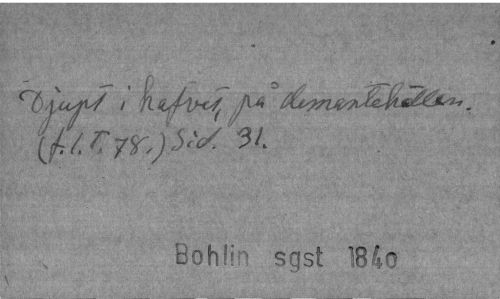 Djupt i hafvet, på demantehällen.
(f.l.T. 78.) Sid. 31.
Bohlin sgst 1840